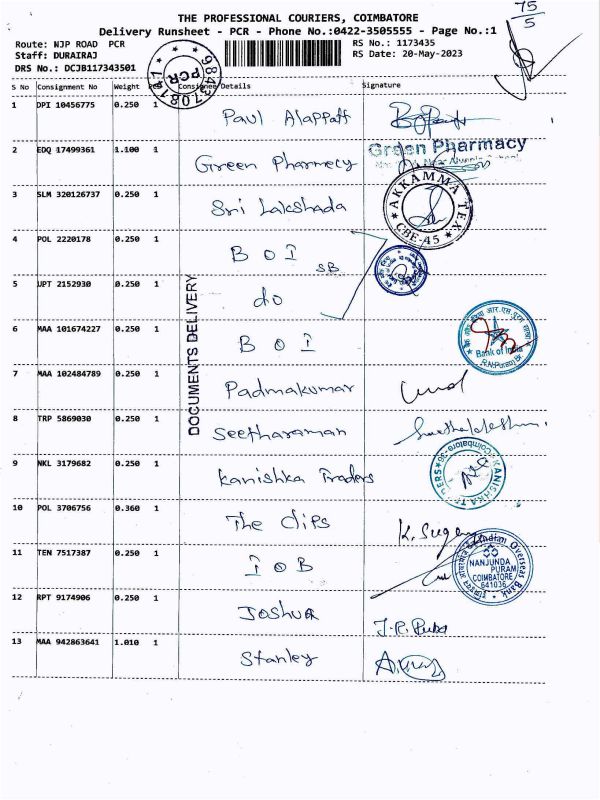 75
5
THE PROFESSIONAL COURIERS, COIMBATORE
Delivery Runsheet - PCR - Phone No.:0422-3505555 - Page No.:1
Route: NJP ROAD PCR
RS No.: 1173435
Staff: DURAIRAJ
RS Date: 20-May-2023
DRS No.: DCJB117343501
PCR
S No Consignment No Weight Consignee Details Signature
1 DPI 10456775 0.250 1 Paul Alappatt
2 EDQ 17499361 1.100 1 Green Pharmecy Green Pharmacy
3 SLM 320126737 0.250 1 Sri Lakshada AKKAMMA TEX CBE-45
4 POL 2220178 0.250 1 B O I SB
5 JPT 2152930 0.250 1 do
6 MAA 101674227 0.250 1 B O I Bank of India R.N.Puram Br.
DOCUMENTS DELIVERY
7 MAA 102484789 0.250 1 Padmakumar
8 TRP 5869030 0.250 1 Seetharaman
9 NKL 3179682 0.250 1 Kanishka Traders KANISHKA TRADERS Coimbatore
10 POL 3706756 0.360 1 The Clips K. Sugen
11 TEN 7517387 0.250 1 I O B Indian Overseas Bank NANJUNDA PURAM COIMBATORE 641036
12 RPT 9174906 0.250 1 Joshua
13 MAA 942863641 1.010 1 Stanley